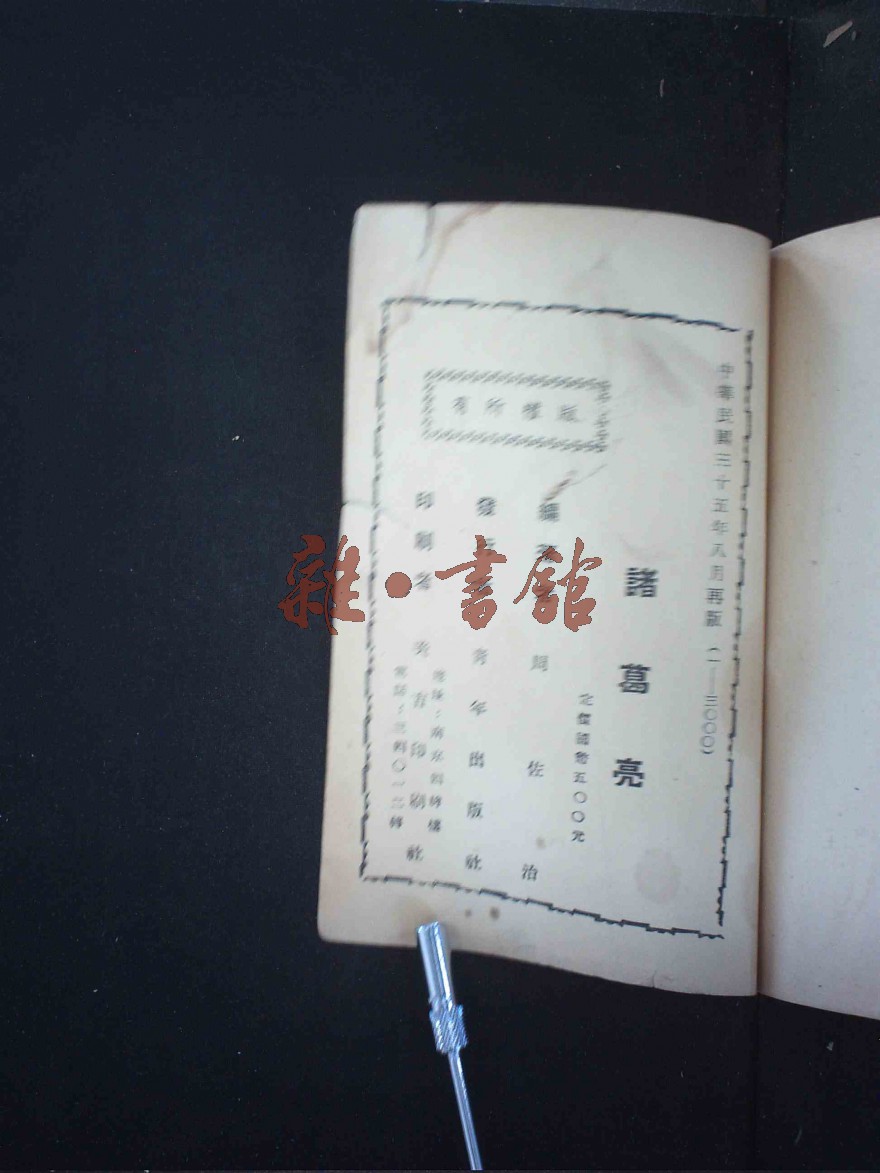 中華民國三十五年八月再版(一—三〇〇〇)
諸葛亮
定價國幣五〇〇元
編著者 周佐治
發行者 青年出版社
地址:南京四條巷
印刷者 美吉印刷社
電話:三四〇一二轉
版權所有
雜·書館